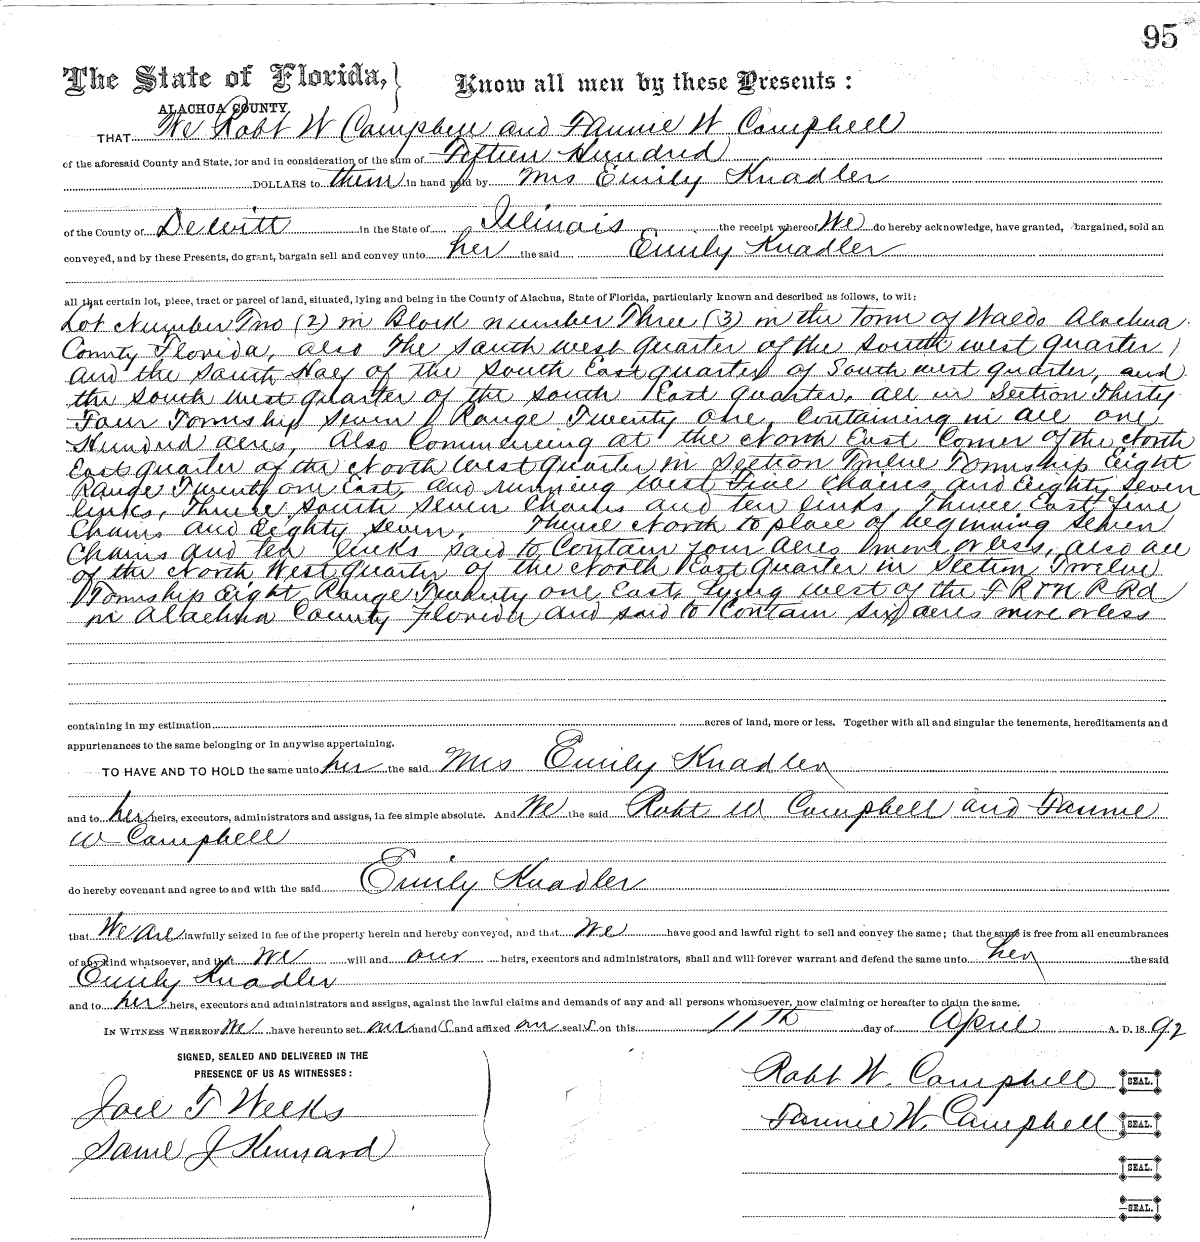 95
The State of Florida, Know all men by these Presents :
ALACHUA COUNTY
THAT We Robt W Campbell and Fannie W Campbell
of the aforesaid County and State, for and in consideration of the sum of Fifteen Hundred
DOLLARS to them in hand paid by Mrs Emily Knadler
of the County of Dewitt in the State of Illinois the receipt whereof We do hereby acknowledge, have granted, bargained, sold an
conveyed, and by these Presents, do grant, bargain sell and convey unto her the said Emily Knadler
all that certain lot, piece, tract or parcel of land, situated, lying and being in the County of Alachua, State of Florida, particularly known and described as follows, to wit:
Lot Number Two (2) in Block number Three (3) in the town of Waldo Alachua
County Florida, also The South west quarter of the South west quarter,
and the South Half of the South East quarter of South west quarter, and
the South west quarter of the South East quarter, all in Section Thirty
Four Township Seven Range Twenty one, Containing in all one
Hundred acres, Also Commencing at the North East Corner of the North
East quarter of the North West quarter in Section Twelve Township Eight
Range Twenty one East, and running west Five Chains and Eighty Seven
links, Thence South Seven Chains and ten links, Thence East five
Chains and Eighty Seven, Thence North to place of beginning Seven
Chains and ten links said to Contain four acres more or less, also all
of the North West quarter of the North East quarter in Section Twelve
Township eight Range Twenty one East, Lying west of the F R & N R Rd
in Alachua County Florida and said to Contain six acres more or less
containing in my estimation acres of land, more or less. Together with all and singular the tenements, hereditaments and
appurtenances to the same belonging or in anywise appertaining.
TO HAVE AND TO HOLD the same unto her the said Mrs Emily Knadler
and to her heirs, executors, administrators and assigns, in fee simple absolute. And We the said Robt W Campbell and Fannie
W Campbell
do hereby covenant and agree to and with the said Emily Knadler
that We are lawfully seized in fee of the property herein and hereby conveyed, and that We have good and lawful right to sell and convey the same; that the same is free from all encumbrances
of any kind whatsoever, and that We will and our heirs, executors and administrators, shall and will forever warrant and defend the same unto her the said
Emily Knadler
and to her heirs, executors and administrators and assigns, against the lawful claims and demands of any and all persons whomsoever, now claiming or hereafter to claim the same.
IN WITNESS WHEREOF We have hereunto set our hand s and affixed our seal s on this 11th day of April A. D. 18 92
SIGNED, SEALED AND DELIVERED IN THE
PRESENCE OF US AS WITNESSES:
Robt W. Campbell SEAL.
Joel T Weeks
Fannie W. Campbell SEAL.
Saml J Kennard
SEAL.
SEAL.